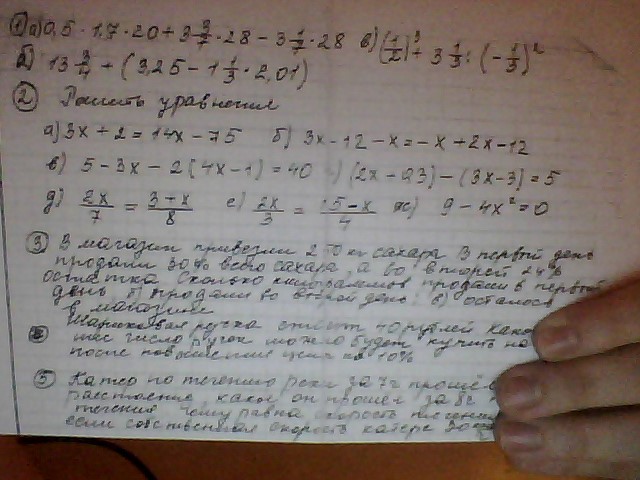 ① а) 0,5 · 1,7 · 20 + 3 3/7 · 28 − 3 1/7 · 28 в) (1/2)³ + 3 1/3 : (−1/3)²
б) 13 3/4 + (3,25 − 1 1/3 · 2,01)
② Решить уравнения
а) 3x + 2 = 14x − 75 б) 3x − 12 − x = −x + 2x − 12
в) 5 − 3x − 2(4x − 1) = 40 (2x − 0,3) − (3x − 3) = 5
д) 2x/7 = 3 + x/8 е) 2x/3 = 15 − x/4 ж) 9 − 4x² = 0
③ В магазин привезли 250 кг сахара В первый день
продали 30% всего сахара, а во второй 24%
остатка Сколько килограммов продали в первый
день б) продали во второй день в) осталось
в магазине
Шариковая ручка стоит 40 рублей Какое
число ручек можно будет купить на
после повышения цены на 10%
⑤ Катер по течению реки за 7ч прошёл
расстояние, какое он прошел за 8ч
течения Чему равна скорость течения
если собственная скорость катера 30